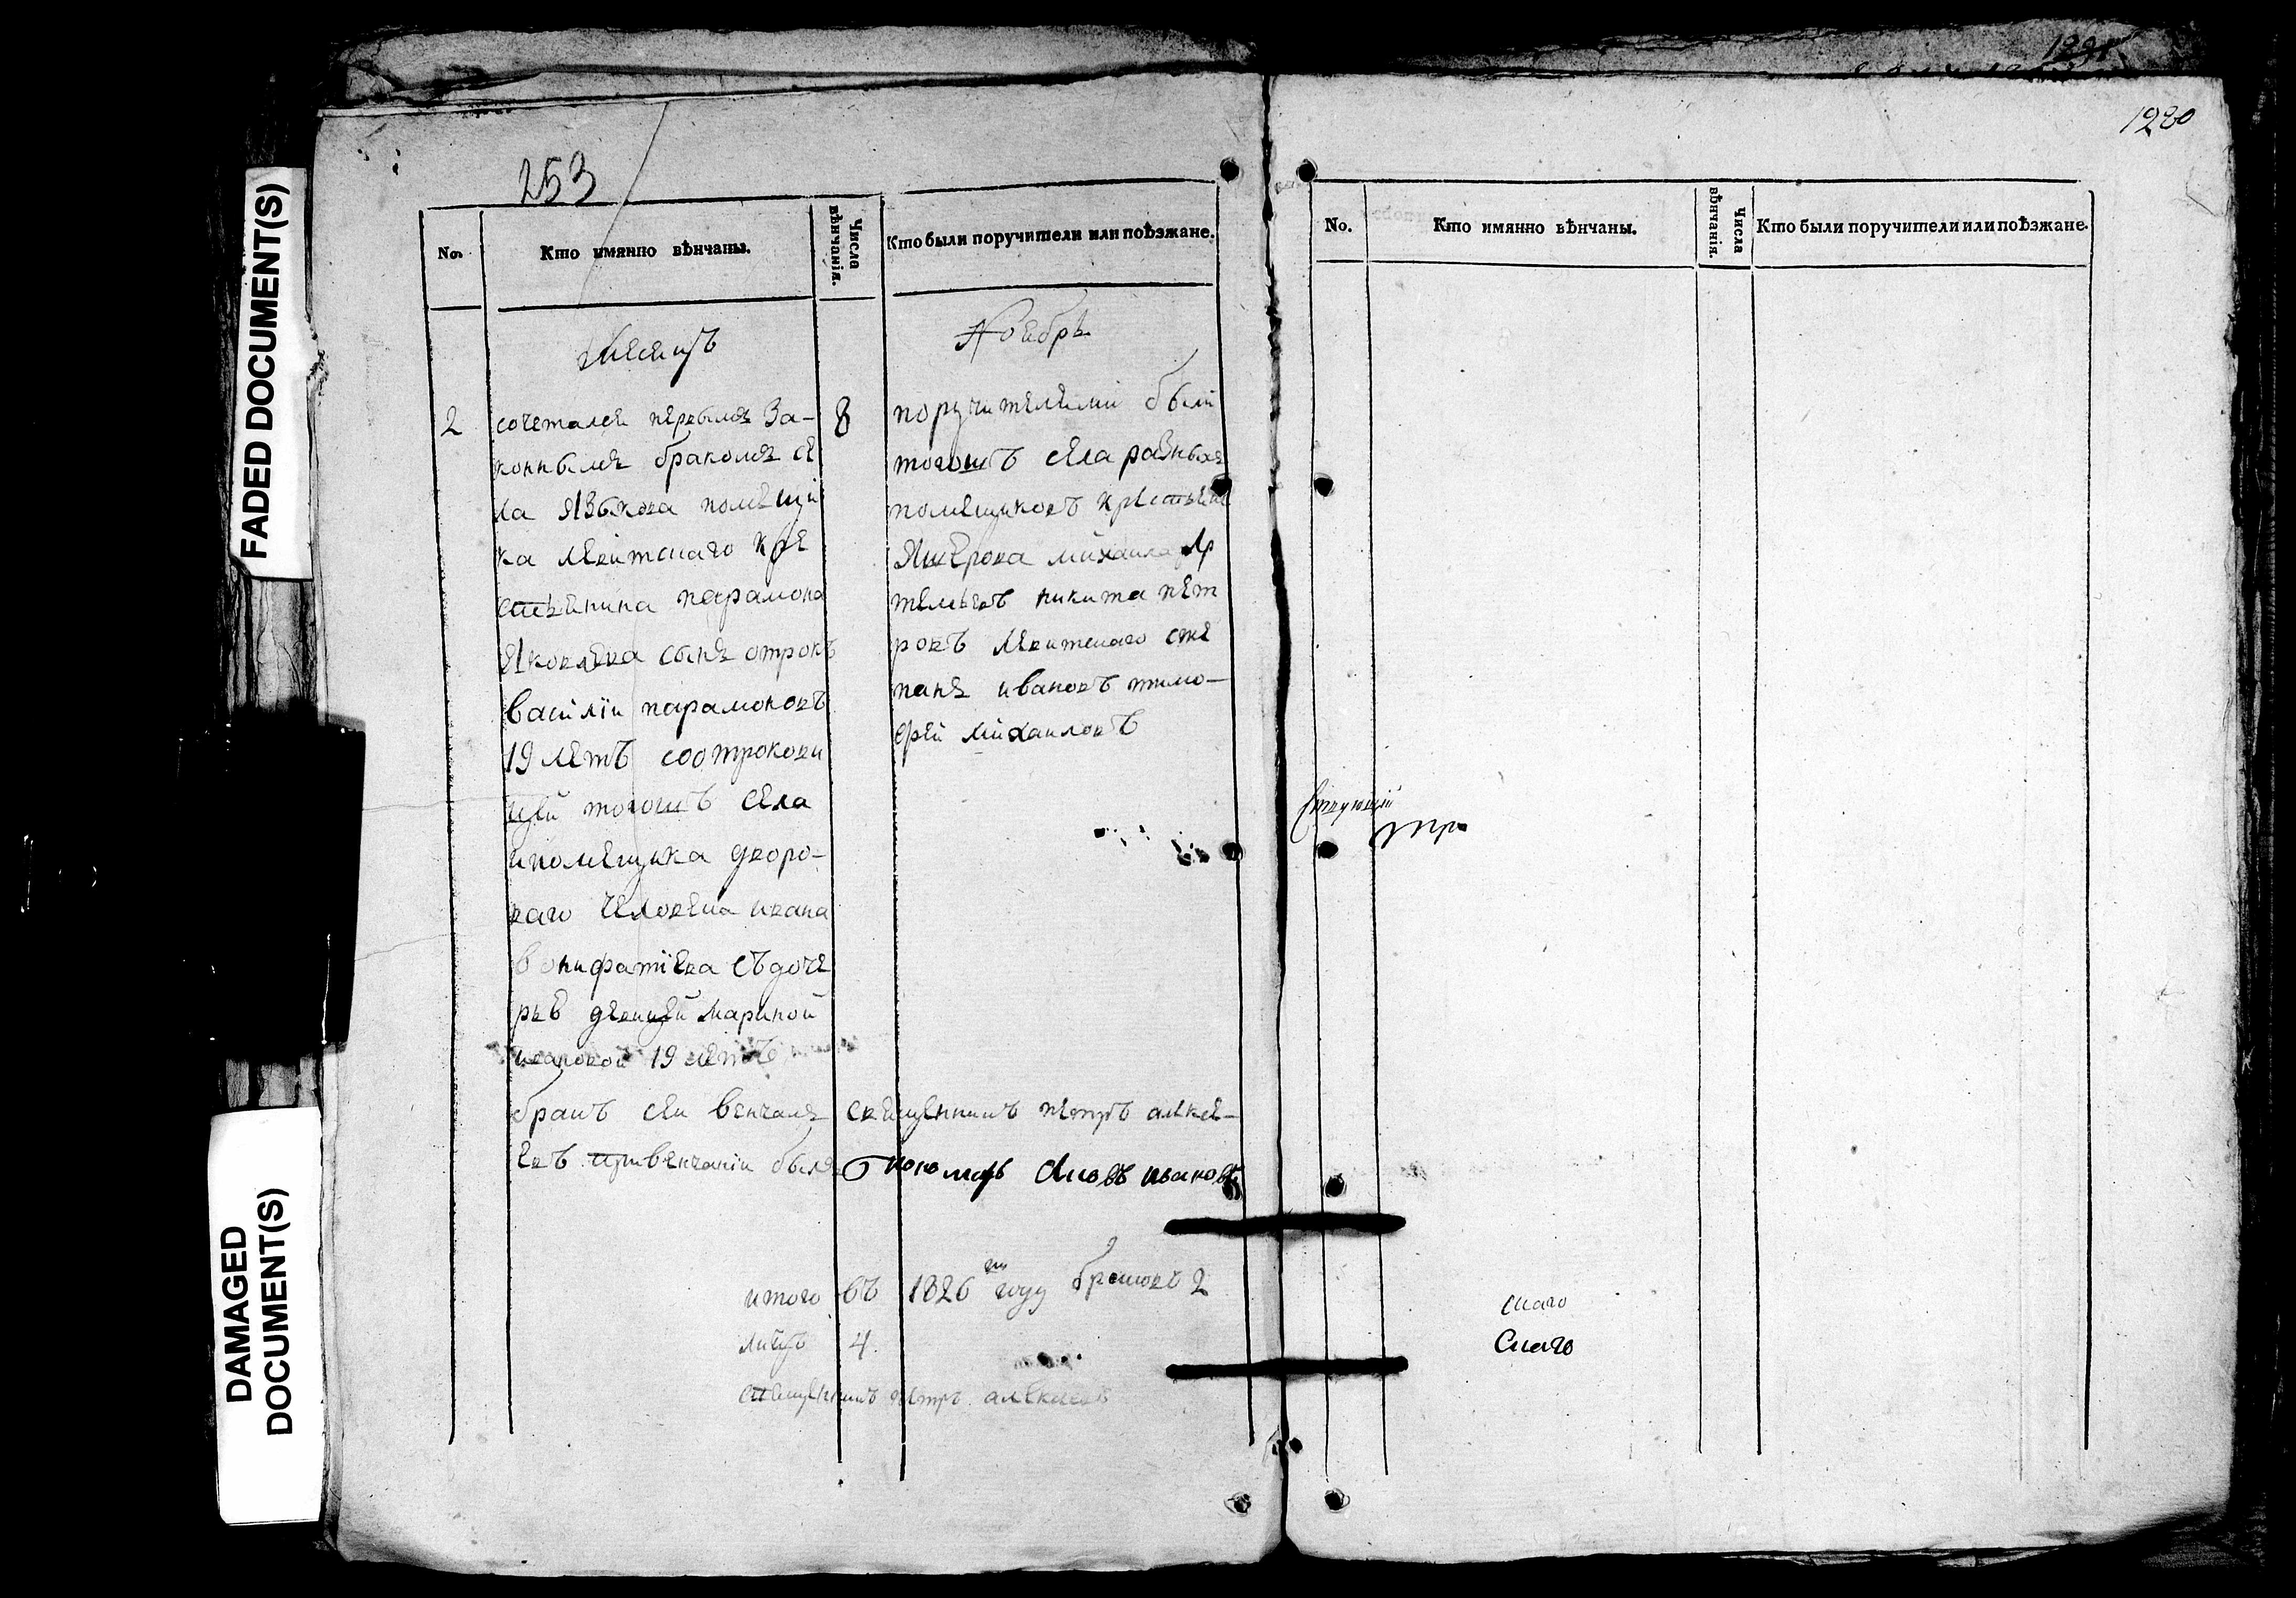 FADED DOCUMENT(S)
DAMAGED
DOCUMENT(S)
253
No.
Кто имянно вѣнчаны.
Числа
вѣнчанія.
Кто были поручители или поѣзжане.
месецъ
Ноебрь
2
сочетался первымъ за-
коннымъ бракомъ се
ла Языкова помещи
ка кре
стьянина парамона
Яковлева сынъ отрокъ
василіи парамоновъ
19 летъ соотрокови
цей тогошъ села
ипомещика дворо-
ваго человека ивана
вонифатіева съдоче
рью девицей мариной
ивановой 19 летъ
8
поручителями были
тогошъ села разныхъ
помещиковъ крестьяне
михаила Ар
темьевъ никита пет
ровъ сте
панъ ивановъ тимо-
фей михаиловъ
бракъ сеи венчалъ свещенникъ петръ алксе-
евъ привенчаніи былъ пономарь Яковъ ивановъ
итого въ 1826 году браковъ 2
лицъ 4
свещенникъ петръ алексеевъ
1280
No.
Кто имянно вѣнчаны.
Числа
вѣнчанія.
Кто были поручители или поѣзжане.
скаго
Скаго